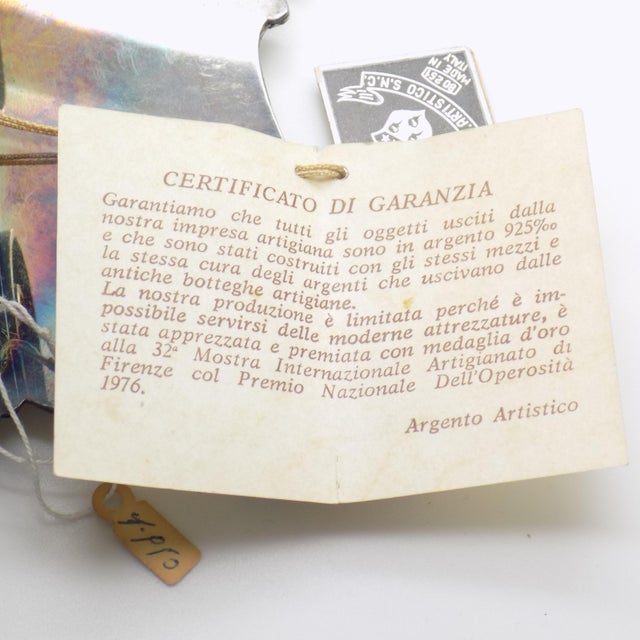 MADE IN
ITALY
(80 251)
ARTISTICO S.N.C.
CERTIFICATO DI GARANZIA
Garantiamo che tutti gli oggetti usciti dalla
nostra impresa artigiana sono in argento 925‰
e che sono stati costruiti con gli stessi mezzi e
la stessa cura degli argenti che uscivano dalle
antiche botteghe artigiane.
La nostra produzione è limitata perché è im-
possibile servirsi delle moderne attrezzature, è
stata apprezzata e premiata con medaglia d'oro
alla 32ª Mostra Internazionale Artigianato di
Firenze col Premio Nazionale Dell'Operosità
1976.
Argento Artistico